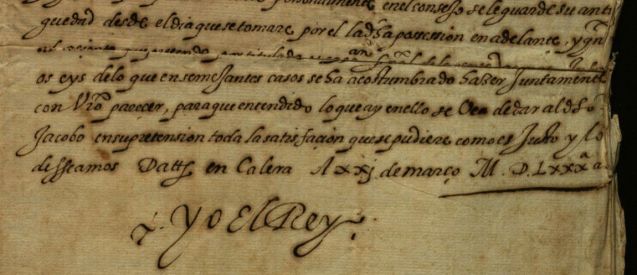 en el consejo se le guarde su anti
guedad desde el dia que se tomare, por el la dha possession en adelante, y qn
os eys de lo que en semejantes casos se ha acostumbrado hazer Juntamente
con Vro parecer, para que entendido lo que ay en ello se Vea de dar al dho
Jacobo en su pretension toda la satisfacion que se pudiere como es Justo y lo
desseamos Datts en Calera A xxj de março M. D. Lxxxª
Yo El Rey